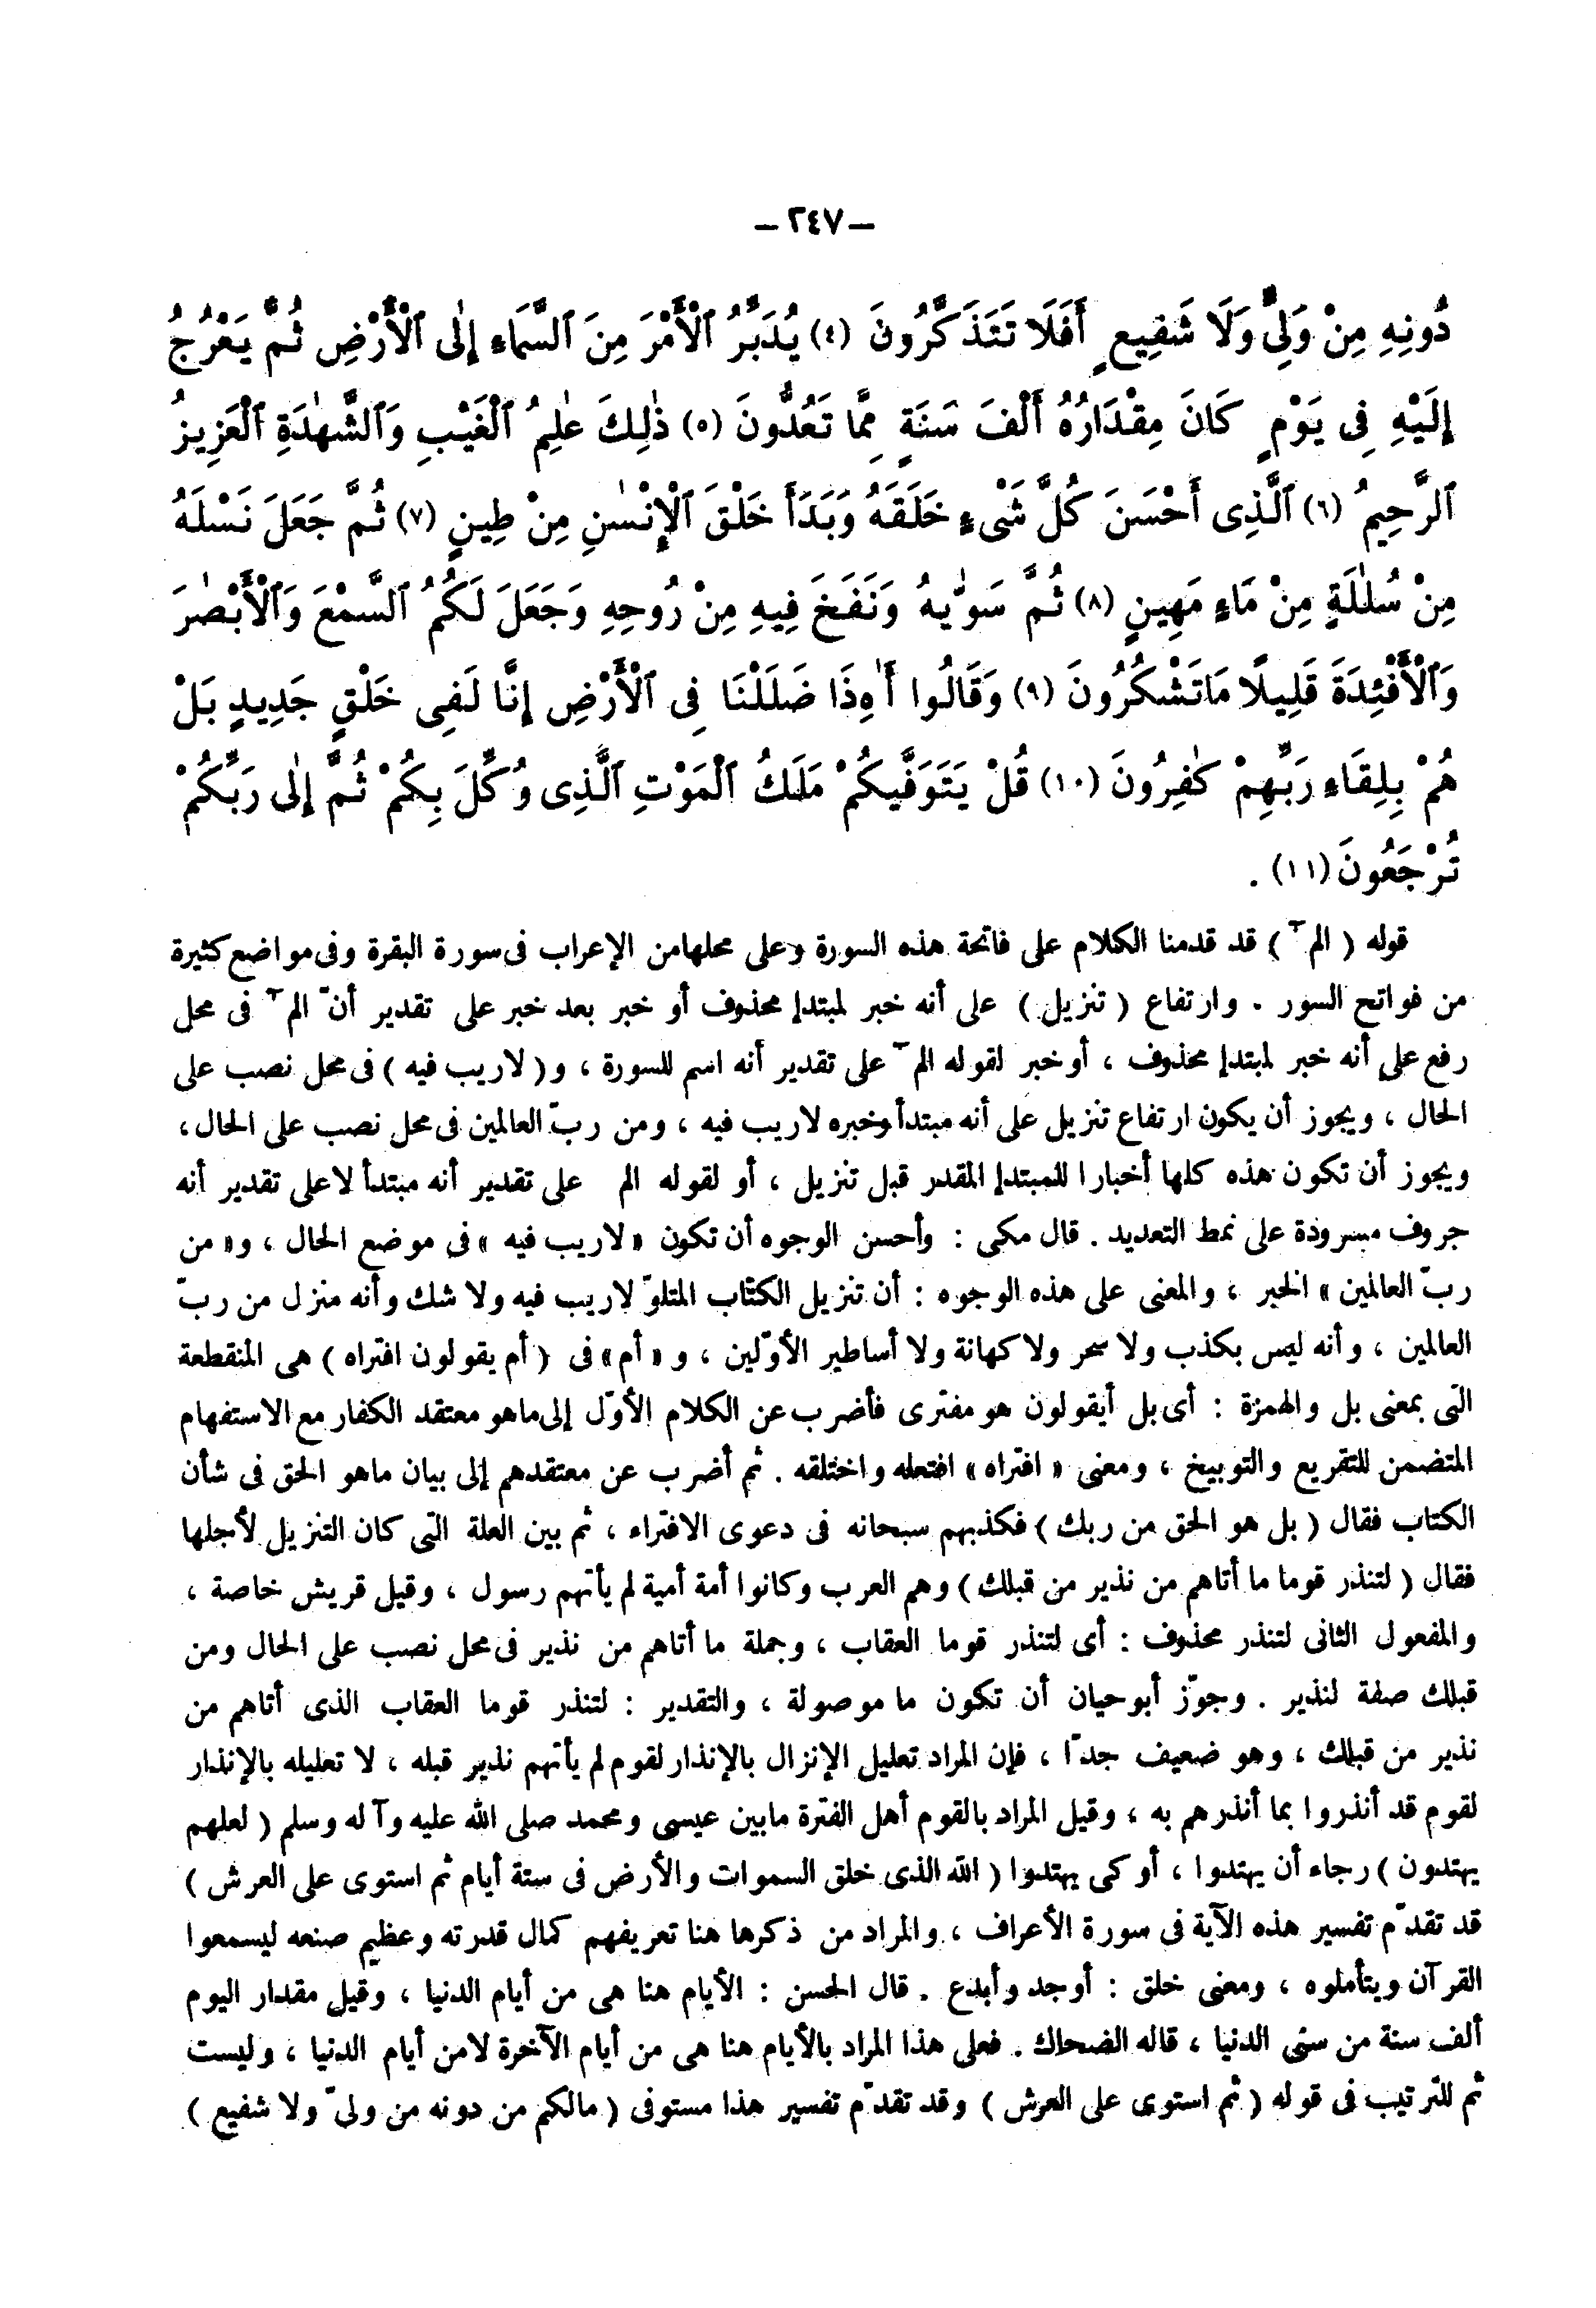 — ٢٤٧ —
دُونِهِ مِنْ وَلِيٍّ وَلَا شَفِيعٍ أَفَلَا تَتَذَكَّرُونَ (٤) يُدَبِّرُ ٱلْأَمْرَ مِنَ ٱلسَّمَاءِ إِلٰى ٱلْأَرْضِ ثُمَّ يَعْرُجُ
إِلَيْهِ فِى يَوْمٍ كَانَ مِقْدَارُهُ أَلْفَ سَنَةٍ مِمَّا تَعُدُّونَ (٥) ذٰلِكَ عٰلِمُ ٱلْغَيْبِ وَٱلشَّهٰدَةِ ٱلْعَزِيزُ
ٱلرَّحِيمُ (٦) ٱلَّذِى أَحْسَنَ كُلَّ شَىْءٍ خَلَقَهُ وَبَدَأَ خَلْقَ ٱلْإِنْسٰنِ مِنْ طِينٍ (٧) ثُمَّ جَعَلَ نَسْلَهُ
مِنْ سُلٰلَةٍ مِنْ مَاءٍ مَهِينٍ (٨) ثُمَّ سَوّٰيهُ وَنَفَخَ فِيهِ مِنْ رُوحِهِ وَجَعَلَ لَكُمُ ٱلسَّمْعَ وَٱلْأَبْصٰرَ
وَٱلْأَفْئِدَةَ قَلِيلًا مَاتَشْكُرُونَ (٩) وَقَالُوا أَءِذَا ضَلَلْنَا فِى ٱلْأَرْضِ إِنَّا لَفِى خَلْقٍ جَدِيدٍ بَلْ
هُمْ بِلِقَاءِ رَبِّهِمْ كٰفِرُونَ (١٠) قُلْ يَتَوَفَّيكُمْ مَلَكُ ٱلْمَوْتِ ٱلَّذِى وُكِّلَ بِكُمْ ثُمَّ إِلٰى رَبِّكُمْ
تُرْجَعُونَ (١١) .
قوله ( الم~ ) قد قدمنا الكلام على فاتحة هذه السورة وعلى محلها من الإعراب فى سورة البقرة وفى مواضع كثيرة
من فواتح السور . وارتفاع ( تنزيل ) على أنه خبر لمبتدإ محذوف أو خبر بعد خبر على تقدير أنّ الم~ فى محل
رفع على أنه خبر لمبتدإ محذوف ، أو خبر لقوله الم~ على تقدير أنه اسم للسورة ، و( لاريب فيه ) فى محل نصب على
الحال ، ويجوز أن يكون ارتفاع تنزيل على أنه مبتدأ وخبره لاريب فيه ، ومن ربّ العالمين فى محل نصب على الحال ،
ويجوز أن تكون هذه كلها أخبارا للمبتدإ المقدر قبل تنزيل ، أو لقوله الم على تقدير أنه مبتدأ لاعلى تقدير أنه
حروف مسرودة على نمط التعديد . قال مكى : وأحسن الوجوه أن تكون « لاريب فيه » فى موضع الحال ، و« من
ربّ العالمين » الخبر ، والمعنى على هذه الوجوه : أن تنزيل الكتاب المتلوّ لاريب فيه ولا شك وأنه منزل من ربّ
العالمين ، وأنه ليس بكذب ولا سحر ولا كهانة ولا أساطير الأوّلين ، و « أم » فى ( أم يقولون افتراه ) هى المنقطعة
التى بمعنى بل والهمزة : أى بل أيقولون هو مفترى فأضرب عن الكلام الأوّل إلى ماهو معتقد الكفار مع الاستفهام
المتضمن للتقريع والتوبيخ ، ومعنى « افتراه » افتعله واختلقه . ثم أضرب عن معتقدهم إلى بيان ماهو الحق فى شأن
الكتاب فقال ( بل هو الحق من ربك ) فكذبهم سبحانه فى دعوى الافتراء ، ثم بين العلة التى كان التنزيل لأجلها
فقال ( لتنذر قوما ما أتاهم من نذير من قبلك ) وهم العرب وكانوا أمة أمية لم يأتهم رسول ، وقيل قريش خاصة ،
والمفعول الثانى لتنذر محذوف : أى لتنذر قوما العقاب ، وجملة ما أتاهم من نذير فى محل نصب على الحال ومن
قبلك صفة لنذير . وجوّز أبوحيان أن تكون ما موصولة ، والتقدير : لتنذر قوما العقاب الذى أتاهم من
نذير من قبلك ، وهو ضعيف جدّا ، فإن المراد تعليل الإنزال بالإنذار لقوم لم يأتهم نذير قبله ، لا تعليله بالإنذار
لقوم قد أنذروا بما أنذرهم به ، وقيل المراد بالقوم أهل الفترة مابين عيسى ومحمد صلى الله عليه وآله وسلم ( لعلهم
يهتدون ) رجاء أن يهتدوا ، أو كى يهتدوا ( الله الذى خلق السموات والأرض فى ستة أيام ثم استوى على العرش )
قد تقدّم تفسير هذه الآية فى سورة الأعراف ، والمراد من ذكرها هنا تعريفهم كمال قدرته وعظيم صنعه ليسمعوا
القرآن ويتأملوه ، ومعنى خلق : أوجد وأبدع . قال الحسن : الأيام هنا هى من أيام الدنيا ، وقيل مقدار اليوم
ألف سنة من سنى الدنيا ، قاله الضحاك . فعلى هذا المراد بالأيام هنا هى من أيام الآخرة لامن أيام الدنيا ، وليست
ثم للترتيب فى قوله ( ثم استوى على العرش ) وقد تقدّم تفسير هذا مستوفى ( مالكم من دونه من ولىّ ولا شفيع )